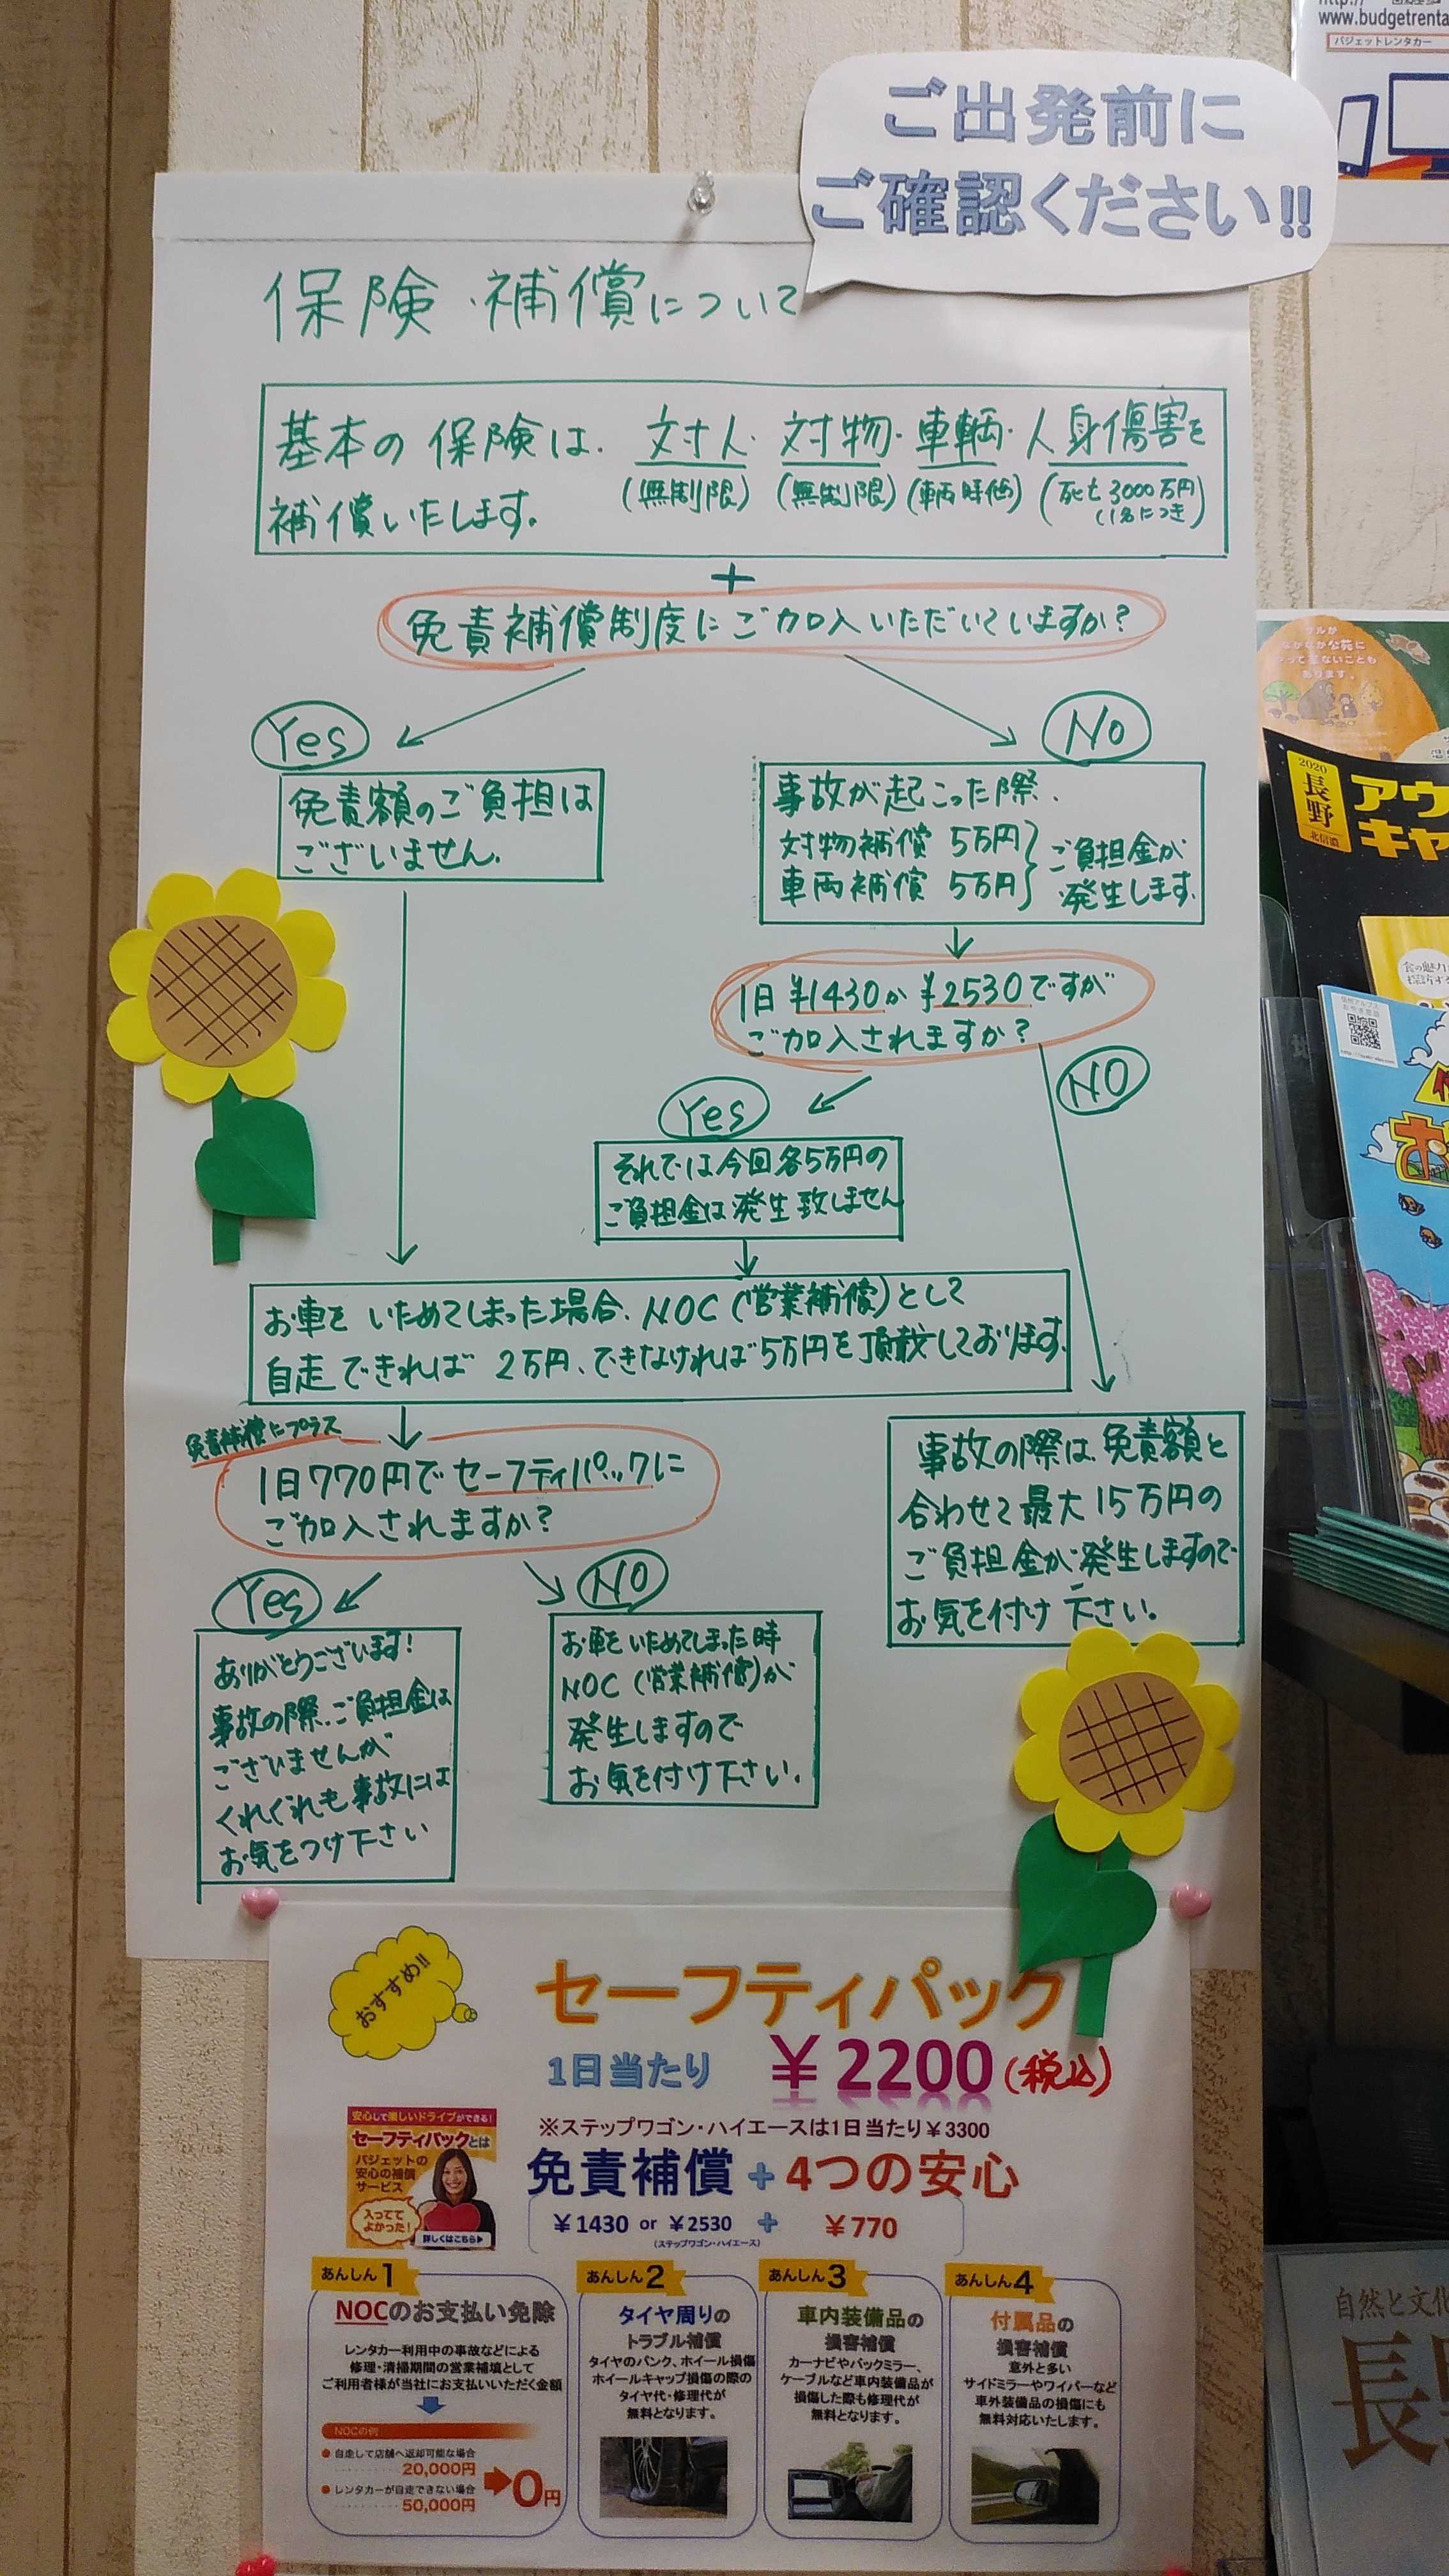 http://
www.budgetrenta
バジェットレンタカー
ご出発前に
ご確認ください!!
保険・補償について
基本の保険は、対人・対物・車輌・人身傷害を
(無制限) (無制限) (車両時価) (死亡3000万円
(1名につき)
補償いたします。
+
免責補償制度にご加入いただいていますか?
Yes
No
免責額のご負担は
ございません。
事故が起こった際、
対物補償 5万円
車両補償 5万円
ご負担金が
発生します。
1日¥1430か¥2530ですが
ご加入されますか?
Yes
NO
それでは今回各5万円の
ご負担金は発生致しません
お車をいためてしまった場合、NOC(営業補償)として
自走できれば2万円、できなければ5万円を頂戴しております。
免責補償にプラス
1日770円でセーフティパックに
ご加入されますか?
Yes
NO
事故の際は免責額と
合わせて最大15万円の
ご負担金が発生しますので
お気を付け下さい。
ありがとうございます!
事故の際、ご負担金は
ございませんが
くれぐれも事故には
お気をつけ下さい
お車をいためてしまった時
NOC(営業補償)が
発生しますので
お気を付け下さい。
おすすめ!!
セーフティパック
1日当たり ¥2200(税込)
※ステップワゴン・ハイエースは1日当たり¥3300
免責補償+4つの安心
¥1430 or ¥2530 + ¥770
(ステップワゴン・ハイエース)
安心して楽しいドライブができる!
セーフティパックとは
バジェットの
安心の補償
サービス
入ってて
よかった!
詳しくはこちら▶
あんしん1
NOCのお支払い免除
レンタカー利用中の事故などによる
修理・清掃期間の営業補填として
ご利用者様が当社にお支払いいただく金額
NOCの例
●自走して店舗へ返却可能な場合
20,000円
●レンタカーが自走できない場合
50,000円
0円
あんしん2
タイヤ周りの
トラブル補償
タイヤのパンク、ホイール損傷
ホイールキャップ損傷の際の
タイヤ代・修理代が
無料となります。
あんしん3
車内装備品の
損害補償
カーナビやバックミラー、
ケーブルなど車内装備品が
損傷した際も修理代が
無料となります。
あんしん4
付属品の
損害補償
意外と多い
サイドミラーやワイパーなど
車外装備品の損傷にも
無料対応いたします。
2020
長野
北信濃
アウ
キャ
自然と文化
長野